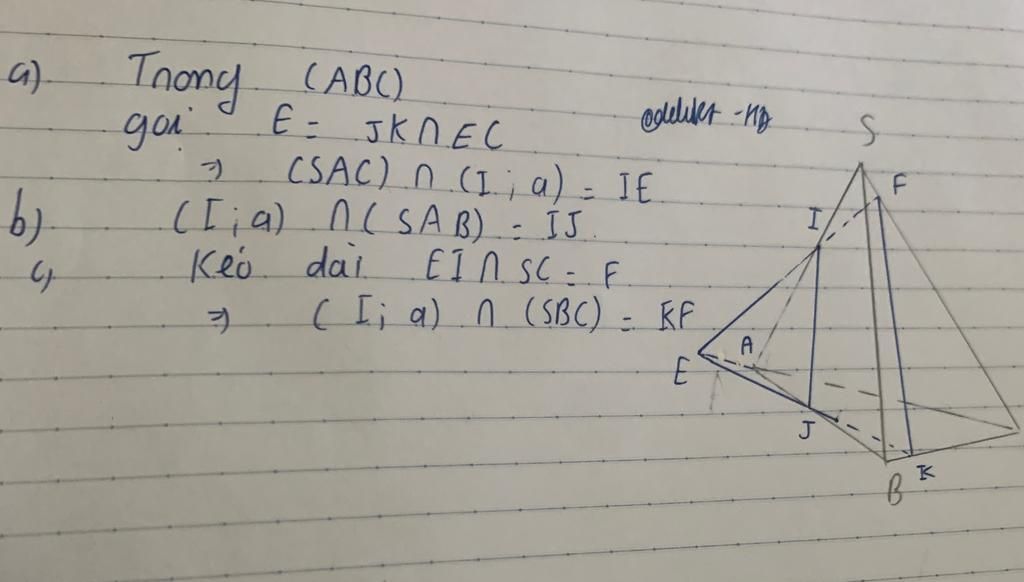 a) Trong (ABC)
gọi E = JK ∩ EC
=> (SAC) ∩ (I ; a) = IE
b) (I ; a) ∩ (SAB) = IJ
c, Kéo dài EI ∩ SC = F
=> (I ; a) ∩ (SBC) = KF
S
F
I
A
E
J
K
B